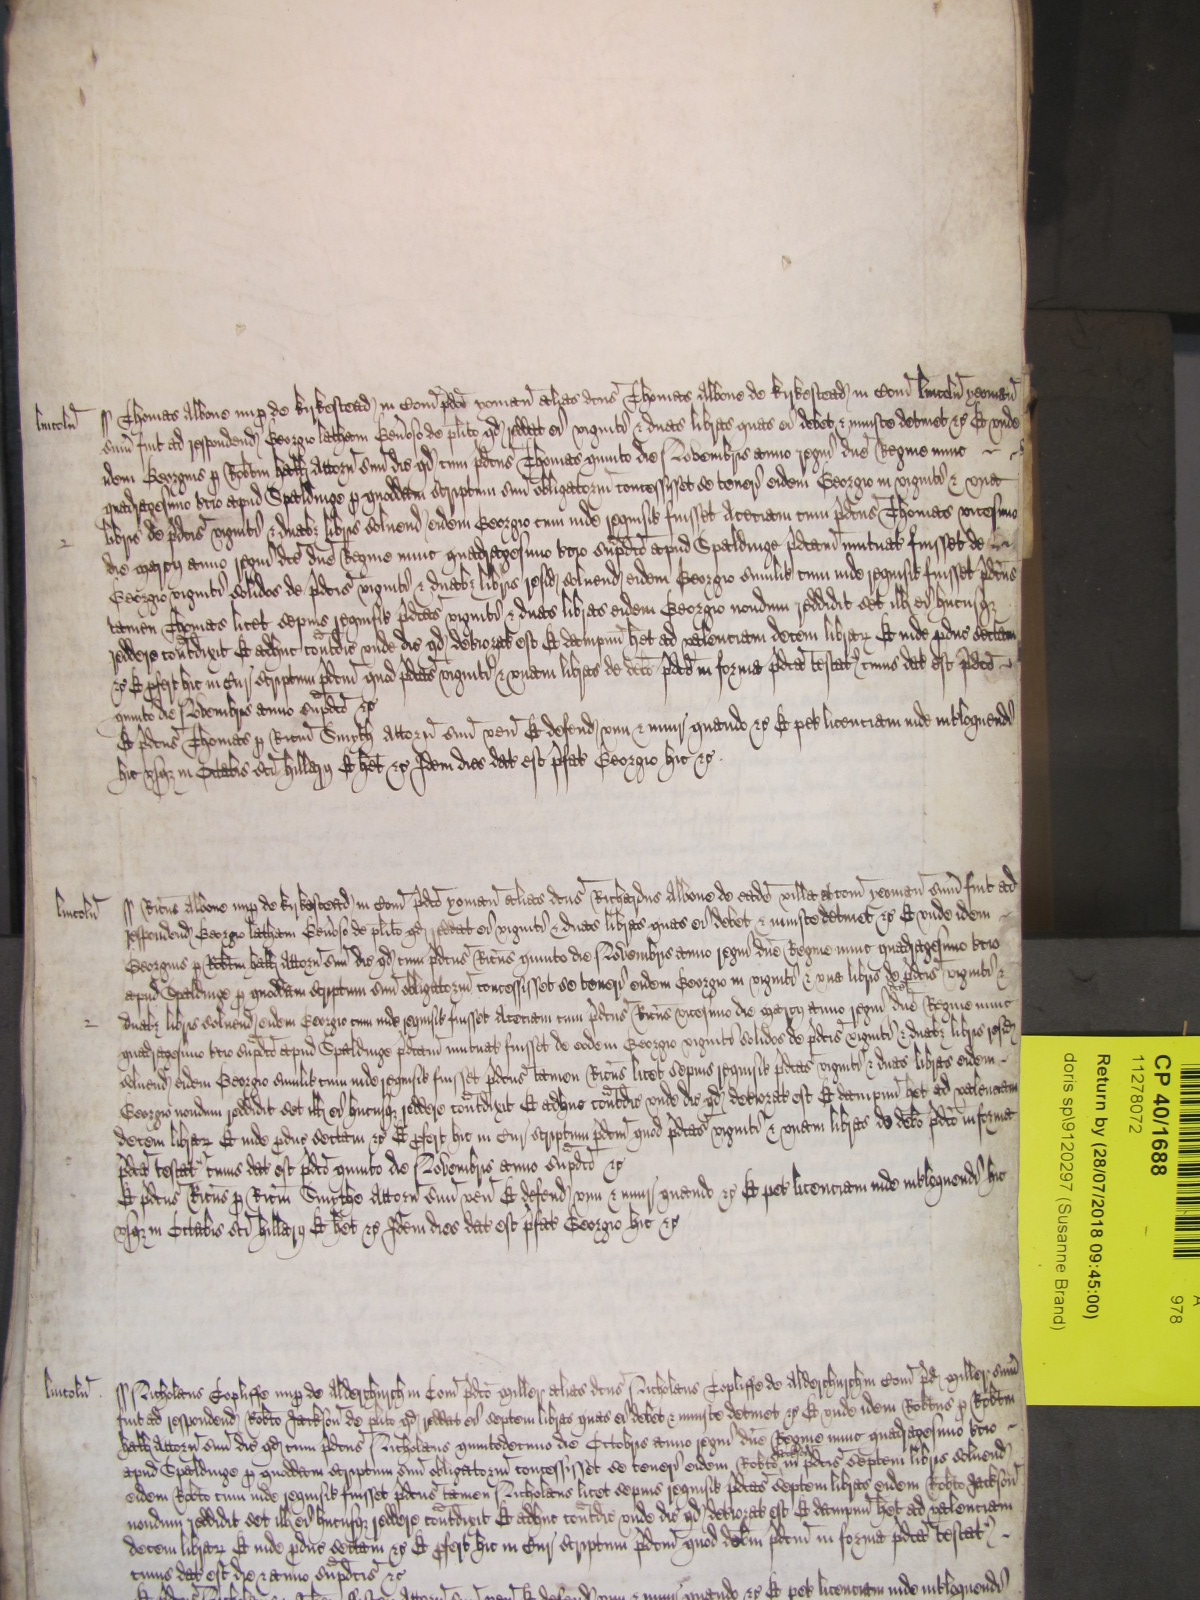 lincoln ss Thomas Albone nup de kyrkestead in Com pdco yoman alias dcus Thomas Albone de kyrkestead in Com lincoln yeoman
sum fuit ad respondend Georgio latham Genoso de plito qd reddat ei viginti & duas libras quas ei debet & iniuste detinet &c Et unde
idem Georgius p Robtm hall Attorn suu dic qd cum pdcus Thomas quinto die Novembris anno regni dne Regine nunc
quadragesimo tcio apud Spaldinge p quoddam scriptum suu obligatoriu concessisset se teneri eidem Georgio in viginti & una
libris de pdcis viginti & duabz libris solvend eidem Georgio cum inde requisit fuisset Aceciam cum pdcus Thomas vicesimo
die marcij anno regni dce dne Regine nunc quadragesimo tcio supdco apud Spaldinge pdcam mutuat fuisset de
Georgio viginti solidos de pdcis viginti & duabz libris resid solvend eidem Georgio similit cum inde requisit fuisset pdcus
tamen Thomas licet sepius requisit pdcas viginti & duas libras eidem Georgio nondum reddidit set ill ei hucusqz
reddere contradixit Et adhuc contradic unde dic qd deteriorat est Et dampnu het ad valenciam decem librar Et inde pduc sectam
&c Et pfert hic in Cur scriptum pdcm quod pdcas viginti & unam libras de debo pdco in forma pdca testat cuius dat est pdco
quinto die Novembris anno supdco &c
Et pdcus Thomas p Ricm Smyth Attorn suu ven Et defend vim & iniur quando &c Et pet licenciam inde intloquendi
hic usqz in Octabis sci hillarij Et het &c Idem dies dat est pfat Georgio hic &c
lincoln ss Ricus Albone nup de kyrkestead in Com pdco yoman alias dcus Richardus Albone de eadem villa & com yeoman sum fuit ad
respondend Georgio latham Genoso de plito qd reddat ei viginti & duas libras quas ei debet & iniuste detinet &c Et unde idem
Georgius p Robtm hall Attorn suu dic qd cum pdcus Ricus quinto die Novembris anno regni dne Regine nunc quadragesimo tcio
apud Spaldinge p quoddam scriptum suu obligatoriu concessisset se teneri eidem Georgio in viginti & una libris de pdcis viginti &
duabz libris solvend eidem Georgio cum inde requisit fuisset Aceciam cum pdcus Ricus vicesimo die marcij anno regni dce dne Regine nunc
quadragesimo tcio supdco apud Spaldinge pdcam mutuat fuisset de eodem Georgio viginti solidos de pdcis viginti & duabz libris resid
solvend eidem Georgio similit cum inde requisit fuisset pdcus tamen Ricus licet sepius requisit pdcas viginti & duas libras eidem
Georgio nondum reddidit set ill ei hucusqz reddere contradixit Et adhuc contradic unde dic qd deteriorat est Et dampnu het ad valenciam
decem librar Et inde pduc sectam &c Et pfert hic in Cur scriptum pdcm quod pdcas viginti & unam libras de debo pdco in forma
pdca testat cuius dat est pdco quinto die Novembris anno supdco &c
Et pdcus Ricus p Ricm Smythe Attorn suu ven Et defend vim & iniur quando &c Et pet licenciam inde intloquendi hic
usqz in Octabis sci hillarij Et het &c Idem dies dat est pfat Georgio hic &c
lincoln ss Nicholaus Copliffe nup de Alderchurch in Com pdco miller alias dcus Nicholaus Copliffe de Alderchurch in Com pd miller sum
fuit ad respondend Robto Jackson de plito qd reddat ei septem libras quas ei debet & iniuste detinet &c Et unde idem Robtus p Robtm
hall Attorn suu dic qd cum pdcus Nicholaus quintodecimo die Octobris anno regni dne Regine nunc quadragesimo tcio
apud Spaldinge p quoddam scriptum suu obligatoriu concessisset se teneri eidem Robto Jackson in pdcis septem libris solvend
eidem Robto cum inde requisit fuisset pdcus tamen Nicholaus licet sepius requisit pdcas septem libras eidem Robto Jackson
nondum reddidit set ill ei hucusqz reddere contradixit Et adhuc contradic unde dic qd deteriorat est Et dampnu het ad valenciam
decem librar Et inde pduc sectam &c Et pfert hic in Cur scriptum pdcm quod debm pdcm in forma pdca testat
cuius dat est die & anno supdcis &c
Attorn suu ven Et defend vim & iniur quando &c Et pet licenciam inde intloquendi
CP 40/1688
11278072
Return by (28/07/2018 09:45:00)
doris sp\9120297 (Susanne Brand)
A
978